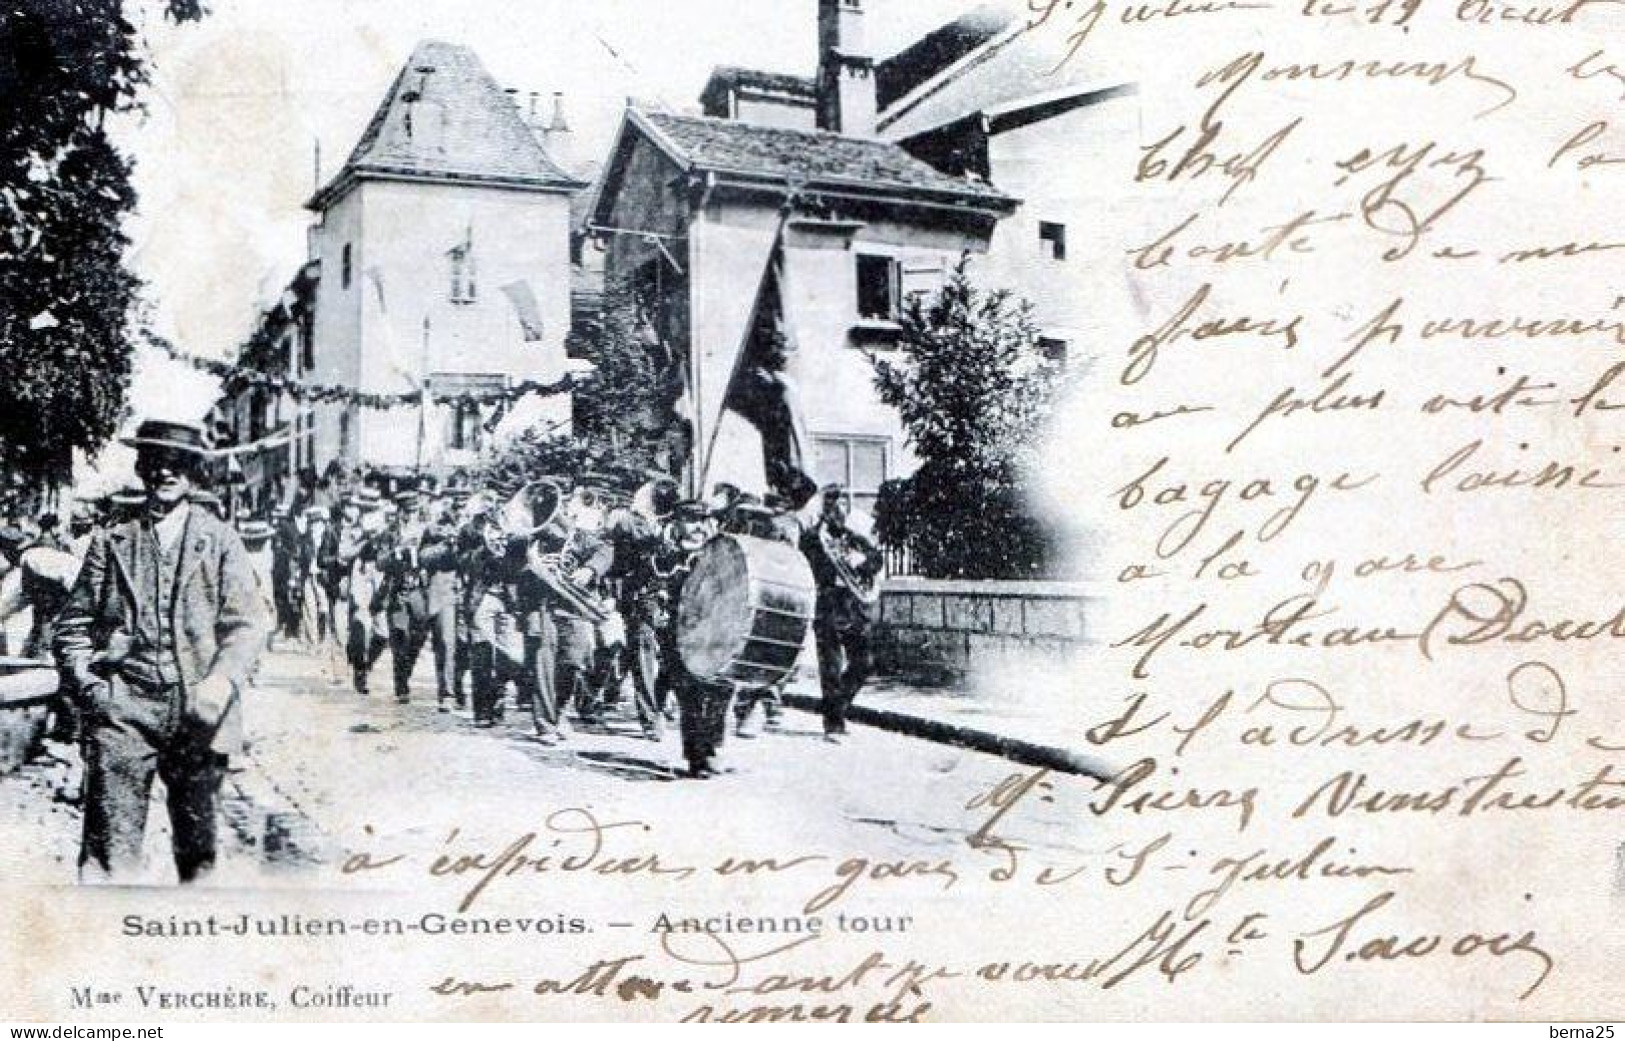 St Julien le 19 Aout
Monsieur le
Chef ayez la
bonté de me
faire parvenir
au plus vite le
bagage laissé
a la gare
Morteau (Doub
à l'adresse de
Mr Pierre
à éxpédier en gare de St Julien
Hte Savoie
Saint-Julien-en-Genevois. — Ancienne tour
en attendant je vous
remercie
Mme VERCHÈRE, Coiffeur
www.delcampe.net
berna25